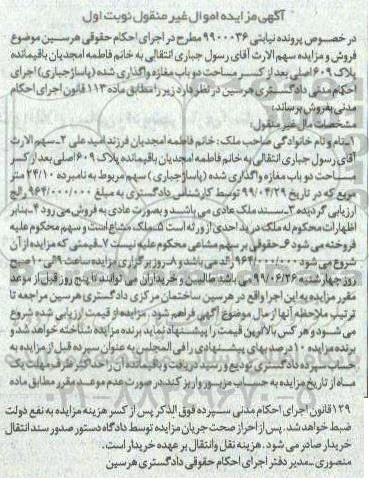 آگهی مزایده اموال غیر منقول نوبت اول
در خصوص پرونده نیابتی ۹۹۰۰۰۳۶ مطرح در اجرای احکام حقوقی هرسین موضوع
فروش و مزایده سهم الارث آقای رسول جباری انتقالی به خانم فاطمه امجدیان باقیمانده
پلاک ۶۰۹ اصلی بعد از کسر مساحت دو باب مغازه واگذاری شده (پاساژ جباری) اجرای
احکام مدنی دادگستری هرسین در نظر دارد زیر را مطابق ماده ۱۱۳ قانون اجرای احکام
مدنی بفروش برساند:
مشخصات مال غیر منقول:
۱ـ نام و نام خانوادگی صاحب ملک: خانم فاطمه امجدیان فرزند امید علی ۲ـ سهم الارث
آقای رسول جباری انتقالی به خانم فاطمه امجدیان باقیمانده پلاک ۶۰۹ اصلی بعد از کسر
مساحت دو باب مغازه واگذاری شده (پاساژ جباری) سهم مربوط به نامبرده ۲۴/۱۰ متر
مربع که در تاریخ ۹۹/۰۴/۲۹ توسط کارشناس دادگستری به مبلغ ۹۶۴/۰۰۰/۰۰۰ ریال
ارزیابی گردیده ۳ـ سند ملک عادی می باشد و بصورت عادی به فروش می رود ۴ـ بنابر
اظهارات محکوم له ملک در ید احدی از ورثه است ۵ـ ملک مشاع است و سهم محکوم علیه
فروخته می شود ۶ـ حقوقی بر سهم مشاعی محکوم علیه نیست ۷ـ قیمتی که مزایده از آن
شروع می شود ۹۶۴/۰۰۰/۰۰۰ ریال می باشد و ۸ـ روز برگزاری مزایده ساعت ۹ الی ۱۰ صبح
روز چهارشنبه ۹۹/۰۶/۲۶ می باشد طالبین و خریداران می توانند تا پنج روز قبل از موعد
مقرر مزایده به این اجرا واقع در هرسین ساختمان مرکزی دادگستری هرسین مراجعه تا
ترتیب ملاحظه آنها از مال موضوع آگهی فراهم شود. مزایده از قیمت ارزیابی شده شروع
می شود و هر کس بالاترین قیمت را پیشنهاد نماید برنده مزایده شناخته خواهد شد و
برنده مزایده ۱۰ درصد بهای پیشنهادی را فی المجلس به عنوان سپرده قبل از مزایده به
حساب سپرده دادگستری تودیع و رسید دریافت و باقیمانده آن را حداکثر ظرف مهلت یک
ماه از تاریخ مزایده به حساب مزبور واریز کند. در صورت عدم موعد مقرر مطابق ماده
۱۲۹ قانون اجرای احکام مدنی سپرده فوق الذکر پس از کسر هزینه مزایده به نفع دولت
ضبط خواهد شد. پس از احراز صحت جریان مزایده توسط دادگاه دستور صدور سند انتقال
خریدار صادر می شود. هزینه نقل وانتقال بر عهده خریدار است.
منصوری ـ مدیر دفتر اجرای احکام حقوقی دادگستری هرسین
۰۲۱-۸۸۳۴۹۶۷۰-۵